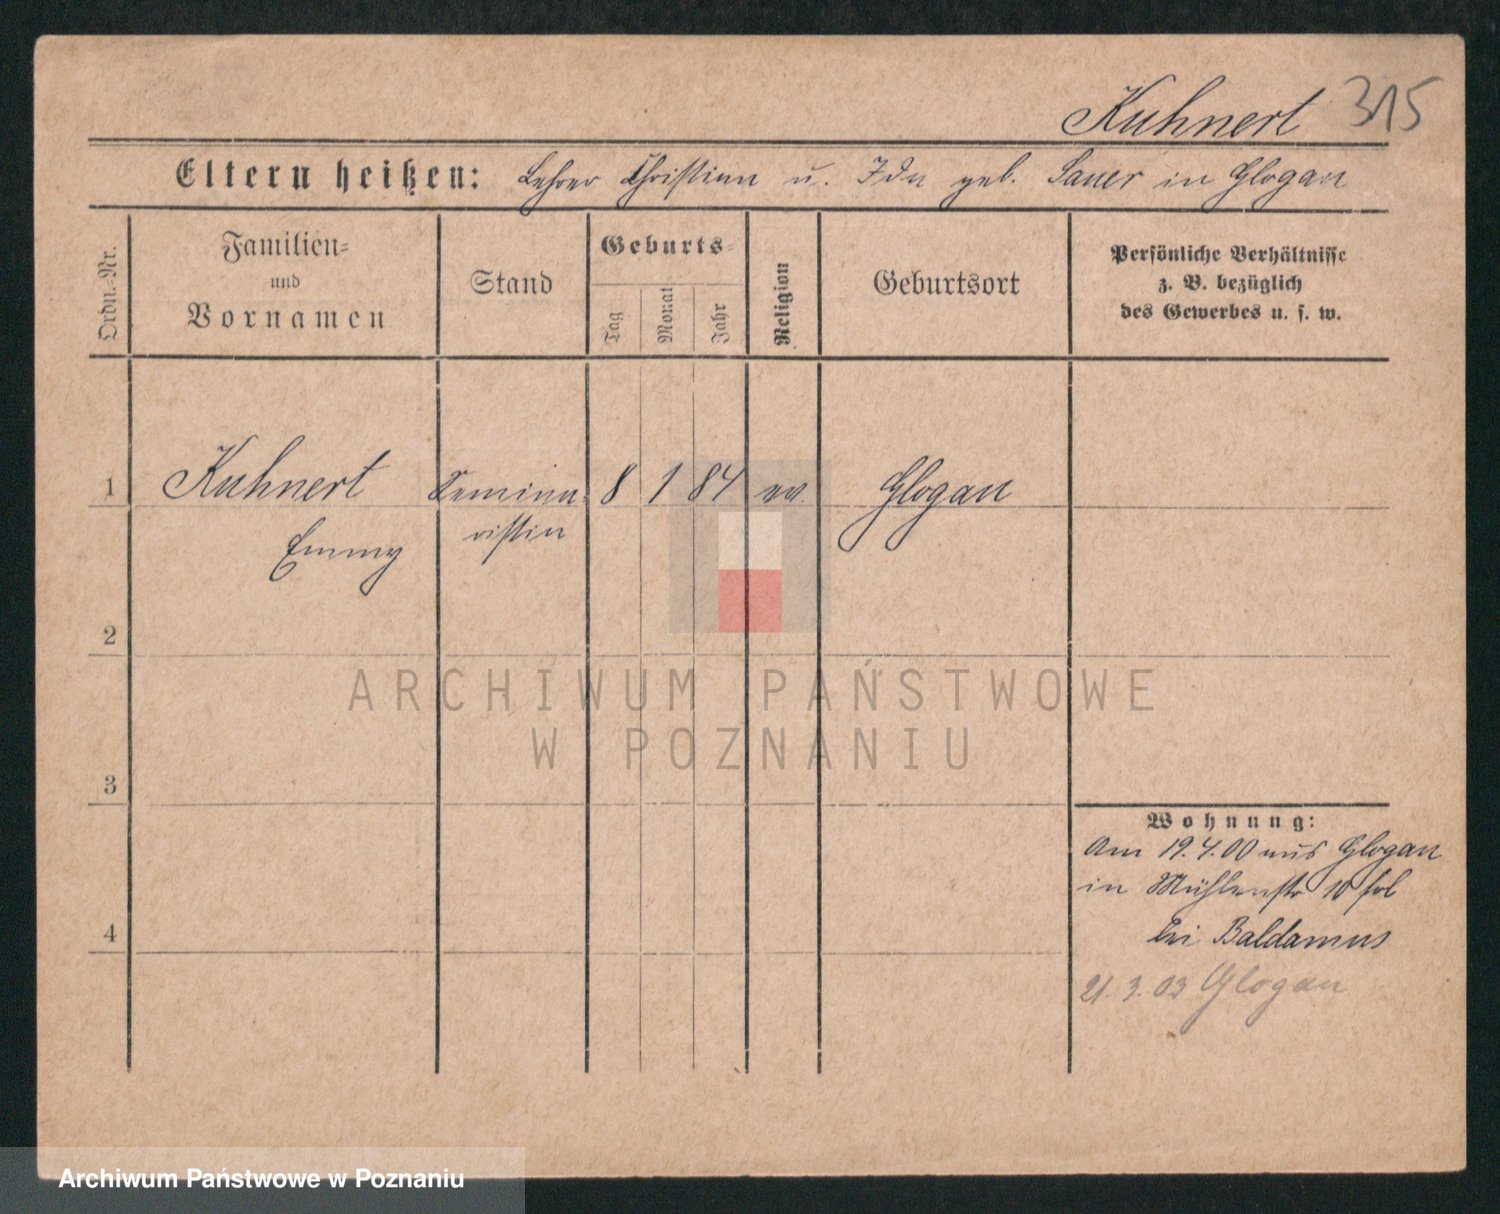 Kuhnert 315
Eltern heißen: Lehrer Christian u. Ida geb. Sauer in Glogau
Ordn.-Nr.
Familien-
und
Vornamen
Stand
Geburts-
Tag
Monat
Jahr
Religion
Geburtsort
Persönliche Verhältnisse
z. B. bezüglich
des Gewerbes u. s. w.
1 Kuhnert Semina- 8 1 84 ev Glogau
Emmy ristin
2
ARCHIWUM PAŃSTWOWE
W POZNANIU
3
Wohnung:
Am 19.4.00 aus Glogau
in Mühlenstr 10
4
bei Baldamus
21.3.03 Glogau
Archiwum Państwowe w Poznaniu